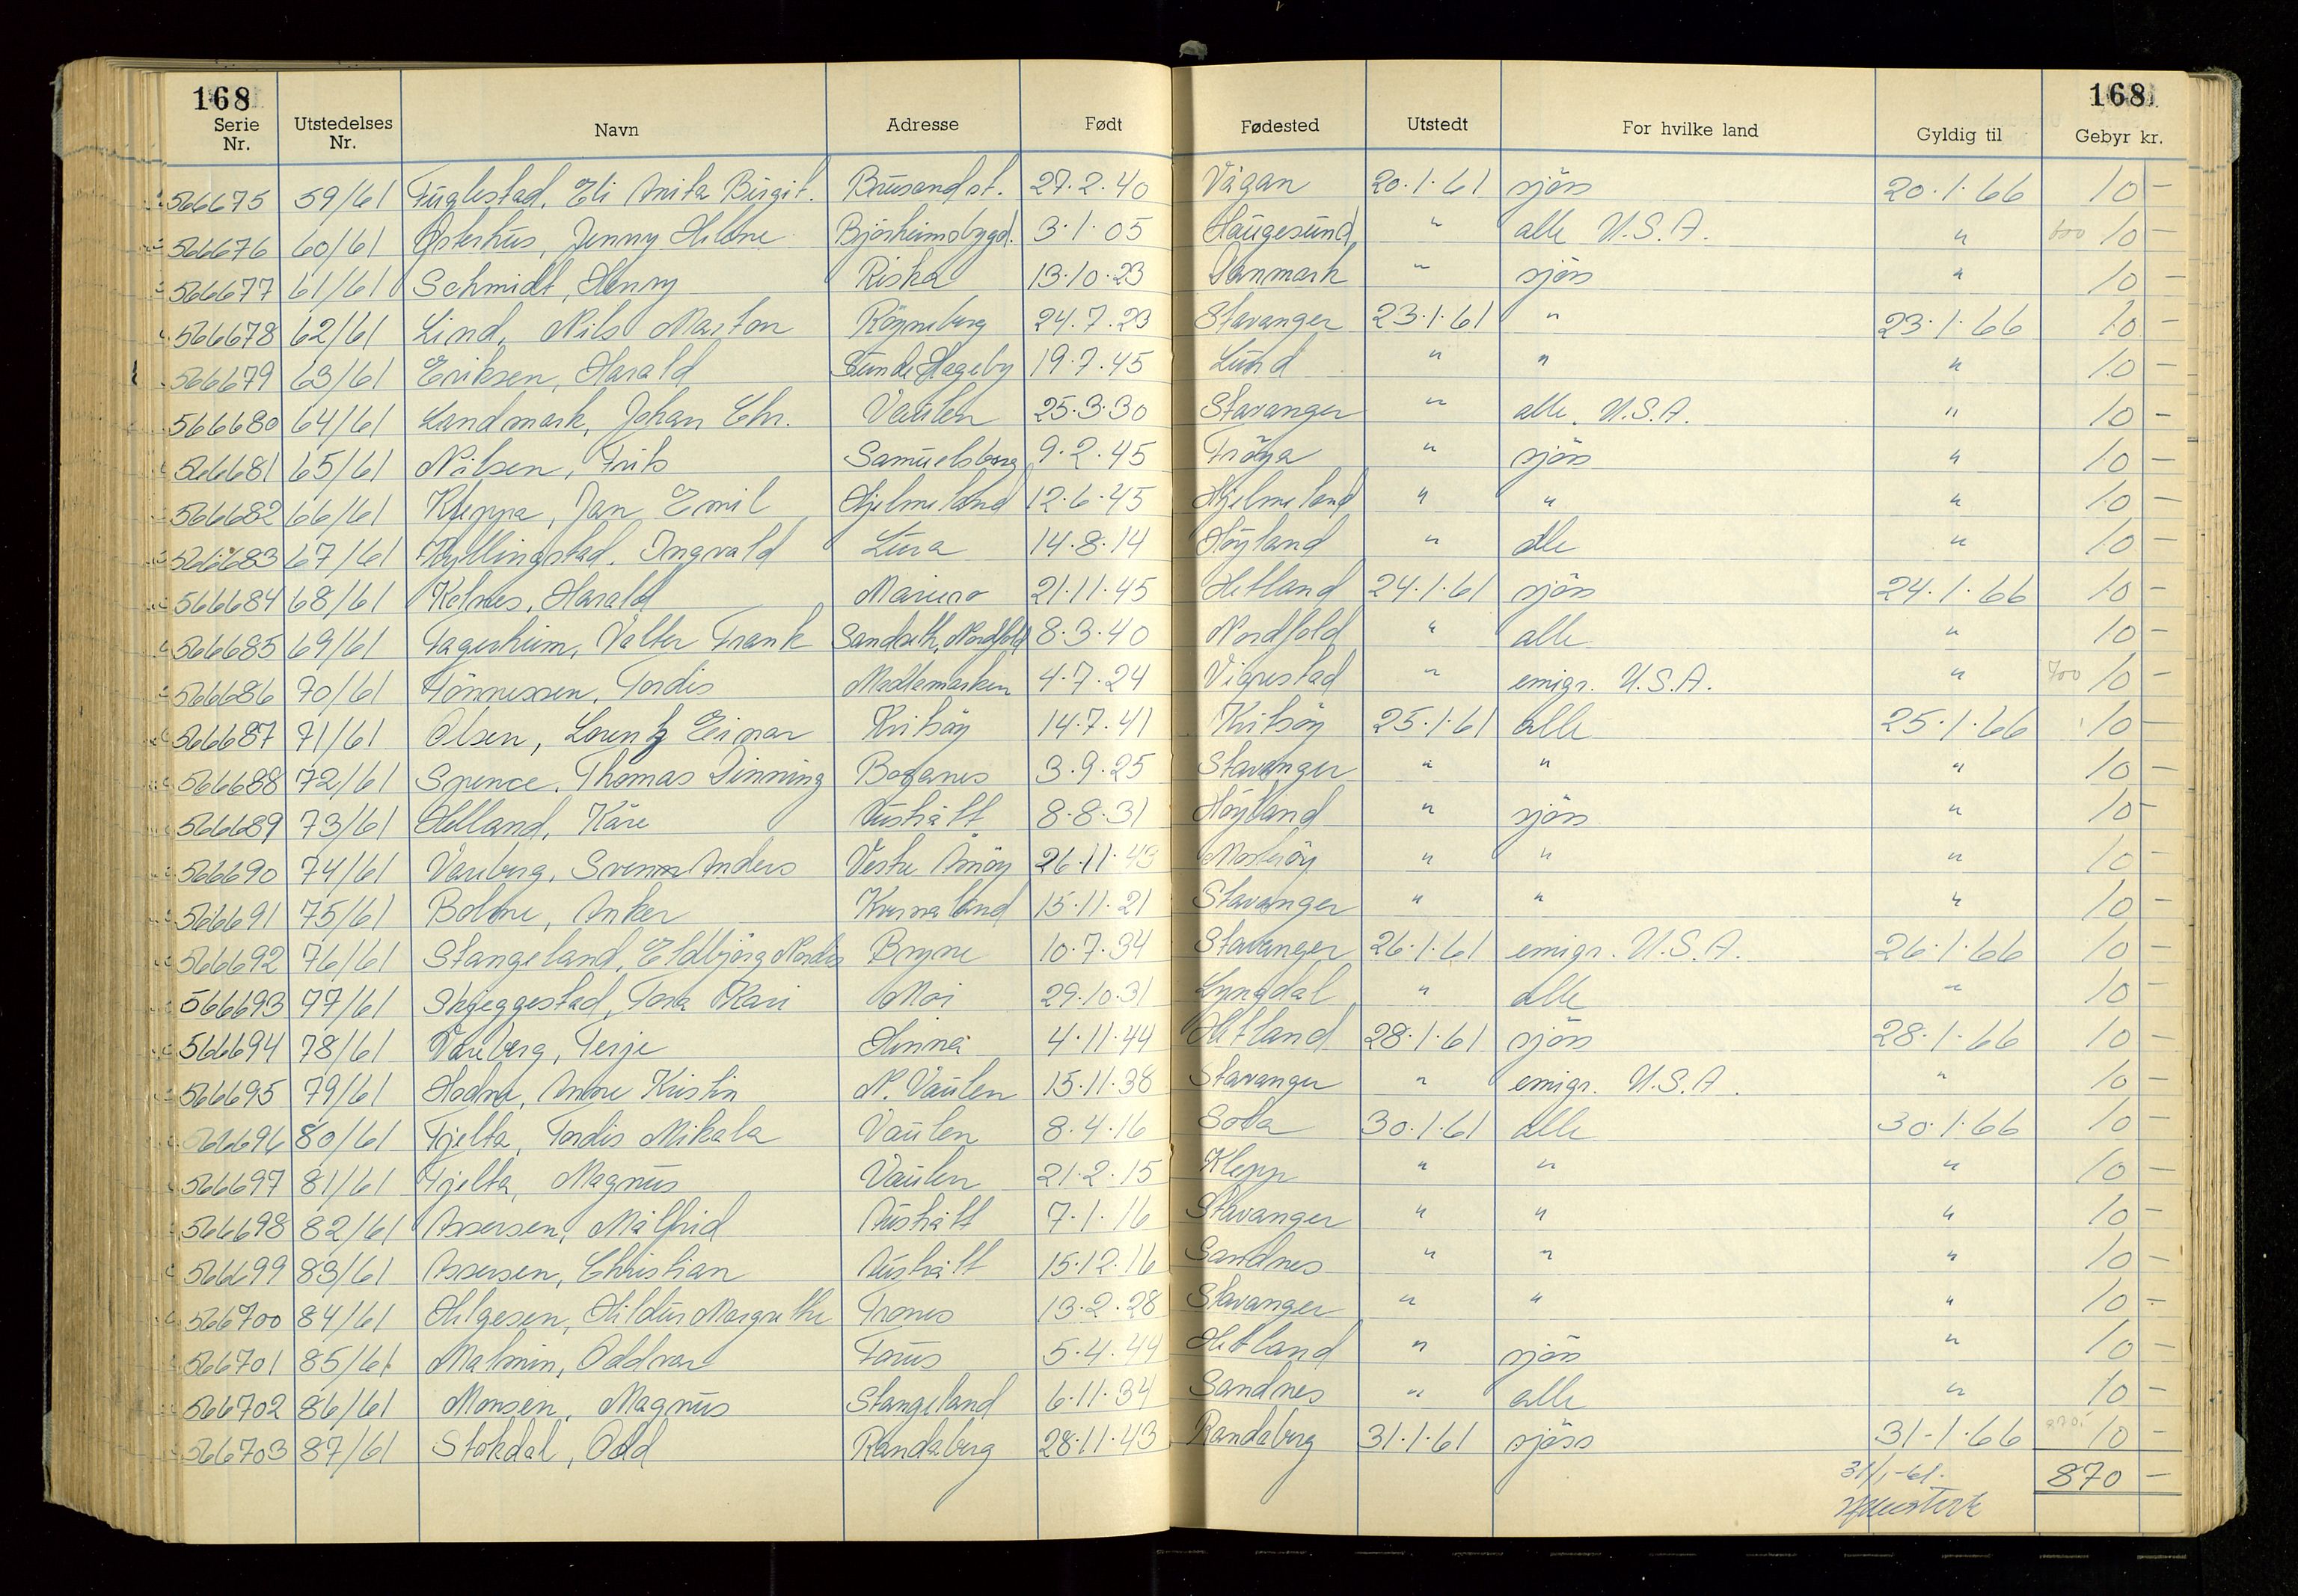 168 168
Serie Nr. Utstedelses Nr. Navn Adresse Født Fødested Utstedt For hvilke land Gyldig til Gebyr kr.
566675 59/61 Fuglestad, Eli Anita Birgit. Brusand st. 27.2.40 Vågan 20.1.61 sjöss 20.1.66 10 –
566676 60/61 Østerhus, Jenny Helene Bjørheimsbygd. 3.1.05 Haugesund " alle U.S.A. " 600 10 –
566677 61/61 Schmidt, Henry Riska 13.10.23 Danmark " sjöss " 10 –
566678 62/61 Lind, Nils Marton Röyneberg 24.7.23 Stavanger 23.1.61 " 23.1.66 10 –
566679 63/61 Eriksen, Harald Sunde Hageby 19.7.45 Lund " " " 10 –
566680 64/61 Landmark, Johan Chr. Vaulen 25.3.30 Stavanger " alle. U.S.A. " 10 –
566681 65/61 Nilsen, Frits Samuelsborg 9.2.45 Fröya " sjöss " 10 –
566682 66/61 Kleppa, Jan Emil Hjelmeland 12.6.45 Hjelmeland " " " 10 –
566683 67/61 Kyllingstad, Ingvald Lura 14.8.14 Höyland " alle " 10 –
566684 68/61 Kolnes, Harald Mariero 21.11.45 Hetland 24.1.61 sjöss 24.1.66 10 –
566685 69/61 Fagerheim, Valter Frank Sandseth, Nordfold 8.3.40 Nordfold " alle " 10 –
566686 70/61 Tönnessen, Tordis Madlamarken 4.7.24 Vigrestad " emigr. U.S.A. " 700 10 –
566687 71/61 Olsen, Lorentz Einar Kvitsöy 14.7.41 Kvitsöy 25.1.61 alle 25.1.66 10 –
566688 72/61 Spence, Thomas Dinning Boganes 3.9.25 Stavanger " " " 10 –
566689 73/61 Helland, Kåre Aushått 8.8.31 Höyland " sjöss " 10 –
566690 74/61 Vareberg, Svenn Anders Vestre Åmöy 26.11.43 Mosteröy " " " 10 –
566691 75/61 Bolme, Anker Kvernaland 15.11.21 Stavanger " " " 10 –
566692 76/61 Stangeland, Eldbjörg Nordis Bryne 10.7.34 Stavanger 26.1.61 emigr. U.S.A. 26.1.66 10 –
566693 77/61 Skjeggestad, Tora Kari Moi 29.10.31 Lyngdal " alle " 10 –
566694 78/61 Vareberg, Terje Hinna 4.11.44 Hetland 28.1.61 sjöss 28.1.66 10 –
566695 79/61 Hodne, Anne Kristin N. Vaulen 15.11.38 Stavanger " emigr. U.S.A. " 10 –
566696 80/61 Tjelta, Tordis Mikala Vaulen 8.4.16 Sola 30.1.61 alle 30.1.66 10 –
566697 81/61 Tjelta, Magnus Vaulen 21.2.15 Klepp " " " 10 –
566698 82/61 Assersen, Målfrid Aushått 7.1.16 Stavanger " " " 10 –
566699 83/61 Assersen, Christian Aushått 15.12.16 Sandnes " " " 10 –
566700 84/61 Helgesen, Hildur Margrethe Trones 13.2.28 Stavanger " " " 10 –
566701 85/61 Malmin, Oddvar Forus 5.4.44 Hetland " sjöss " 10 –
566702 86/61 Monsen, Magnus Stangeland 6.11.34 Sandnes " alle " 10 –
566703 87/61 Stokdal, Odd Randaberg 28.11.43 Randaberg 31.1.61 sjöss 31-1.66 10 –
31/1-61. 870 –